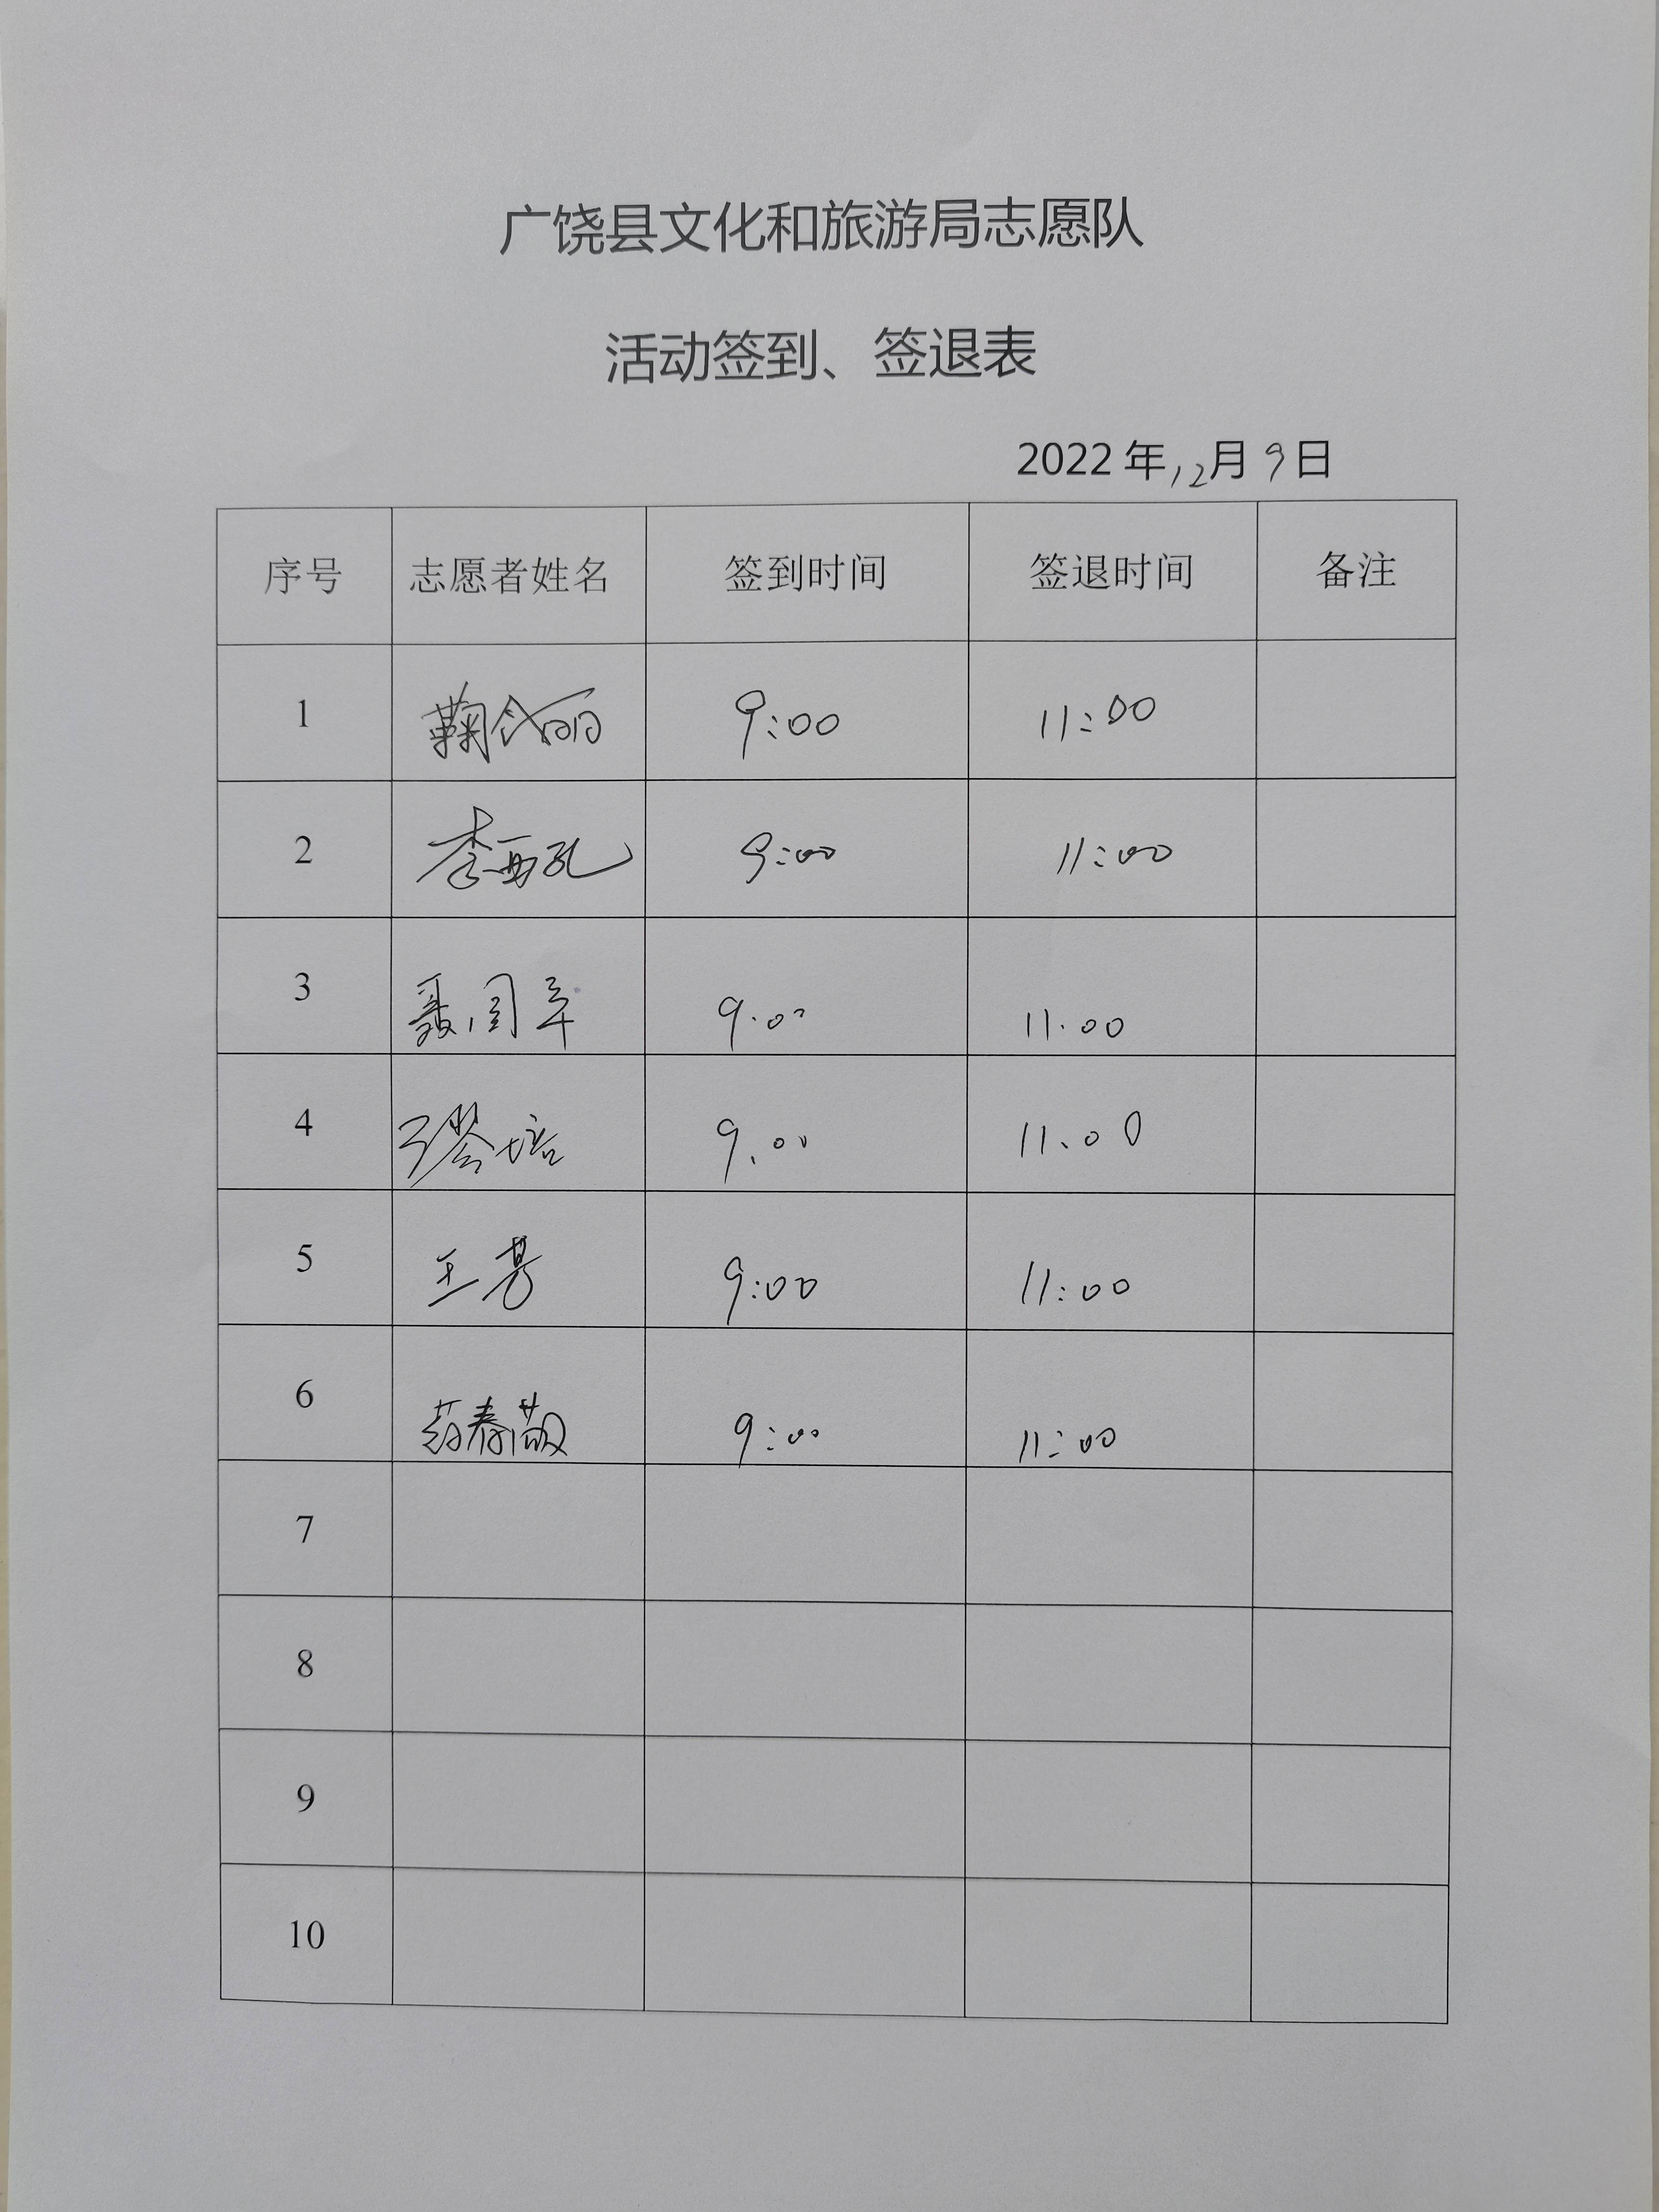 广饶县文化和旅游局志愿队
活动签到、签退表
2022年12月9日
序号 志愿者姓名 签到时间 签退时间 备注
1 鞠 丽 9:00 11:00
2 李 孔 9:00 11:00
3 聂 9.00 11.00
4 培 9.00 11.00
5 王芳 9:00 11:00
6 春 9:00 11:00
7
8
9
10